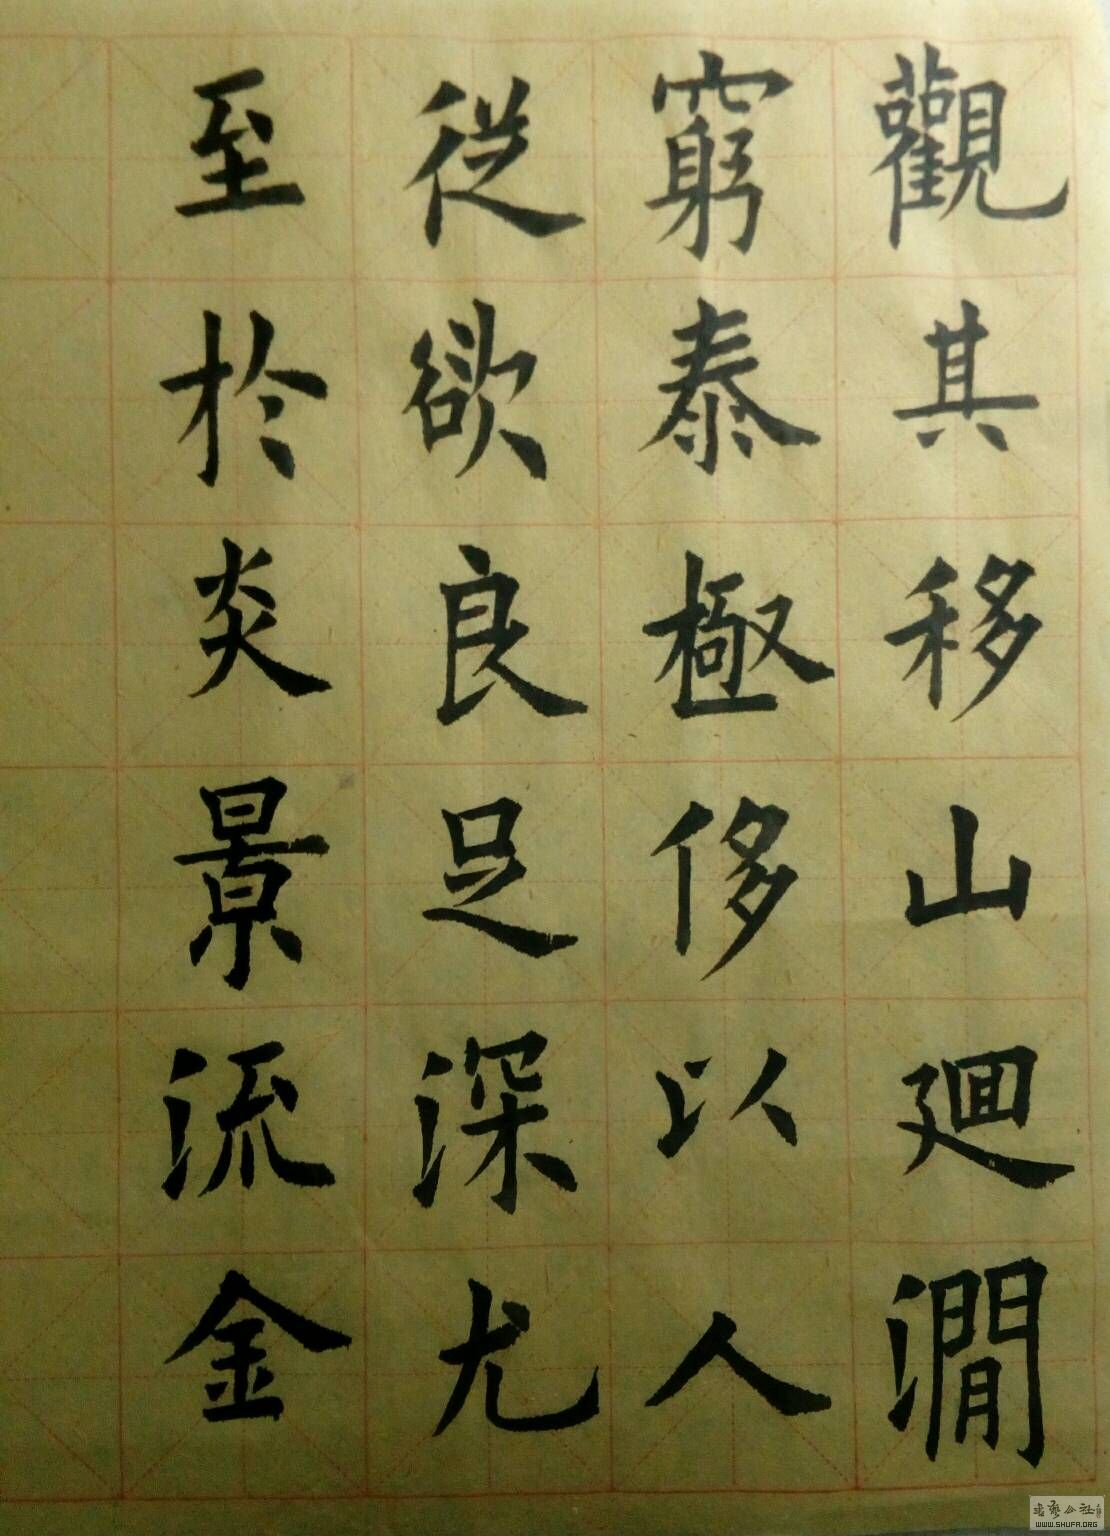 觀其移山廻澗
窮泰極侈以人
從欲良足深尤
至於炎景流金
書藝公社
WWW.SHUFA.ORG